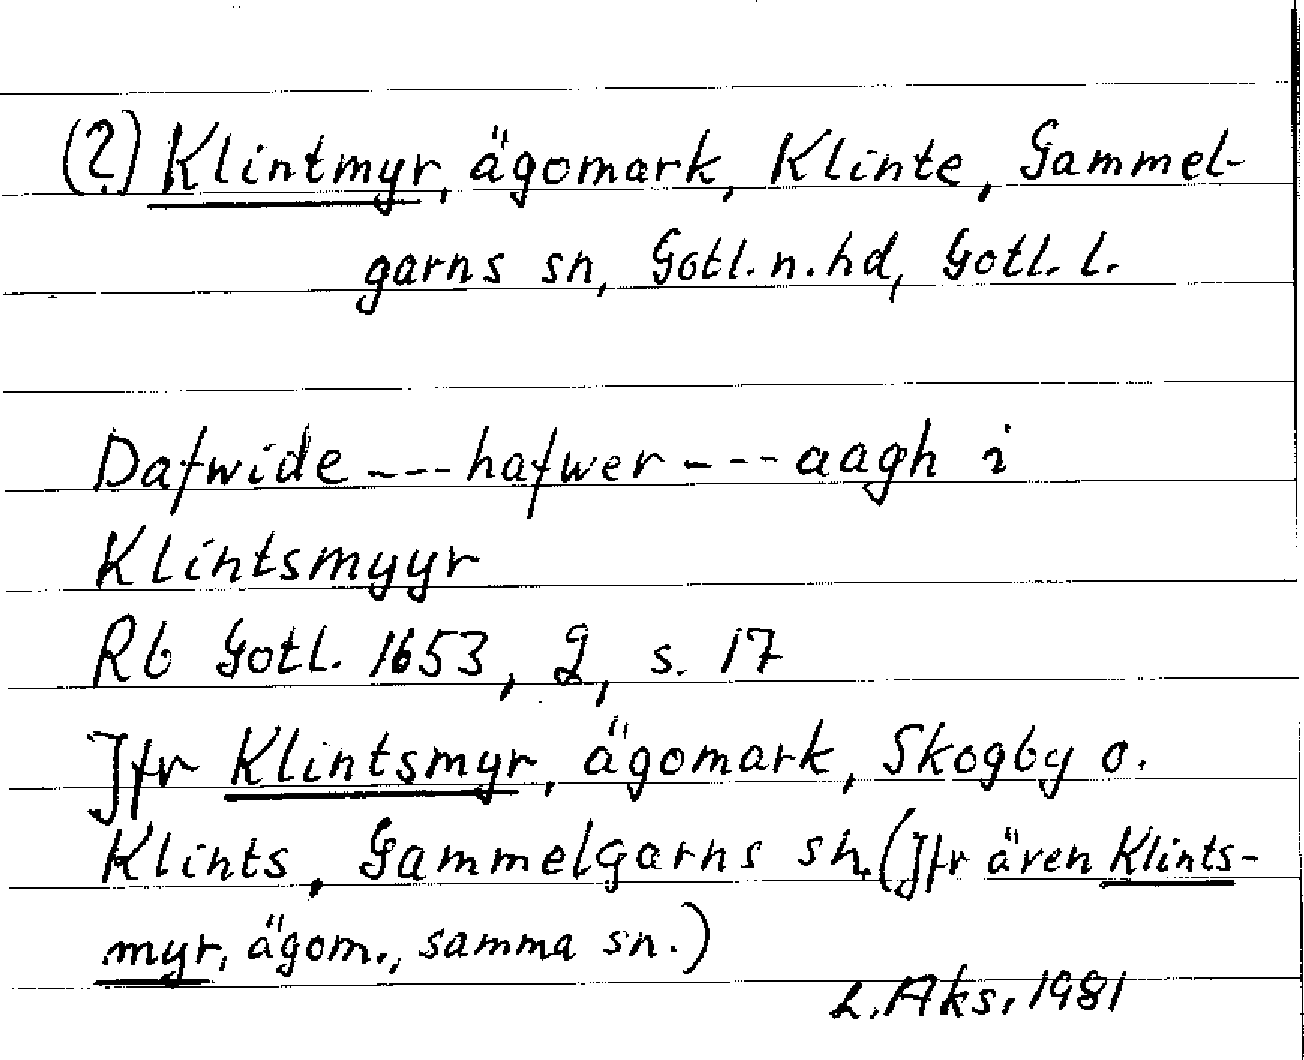 (?) Klintmyr, ägomark, Klinte, Gammel-
garns sn, Gotl. n. hd, Gotl. l.
Dafwide --- hafwer --- aagh i
Klintsmyyr
Rb Gotl. 1653, 2, s. 17
Jfr Klintsmyr, ägomark, Skogby o.
Klints, Gammelgarns sn. (Jfr även Klints-
myr, ägom., samma sn.)
L. Aks. 1981